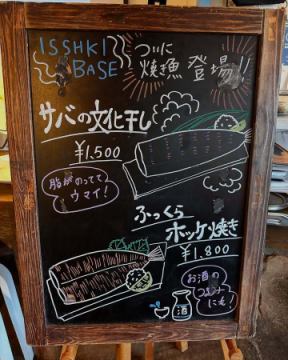 ISSHKI
BASE
ついに
焼き魚 登場!!
サバの文化干し
¥1,500
脂がのってて
ウマイ!
ふっくら
ホッケ焼き
¥1,800
お酒の
つまみ
にも!
酒